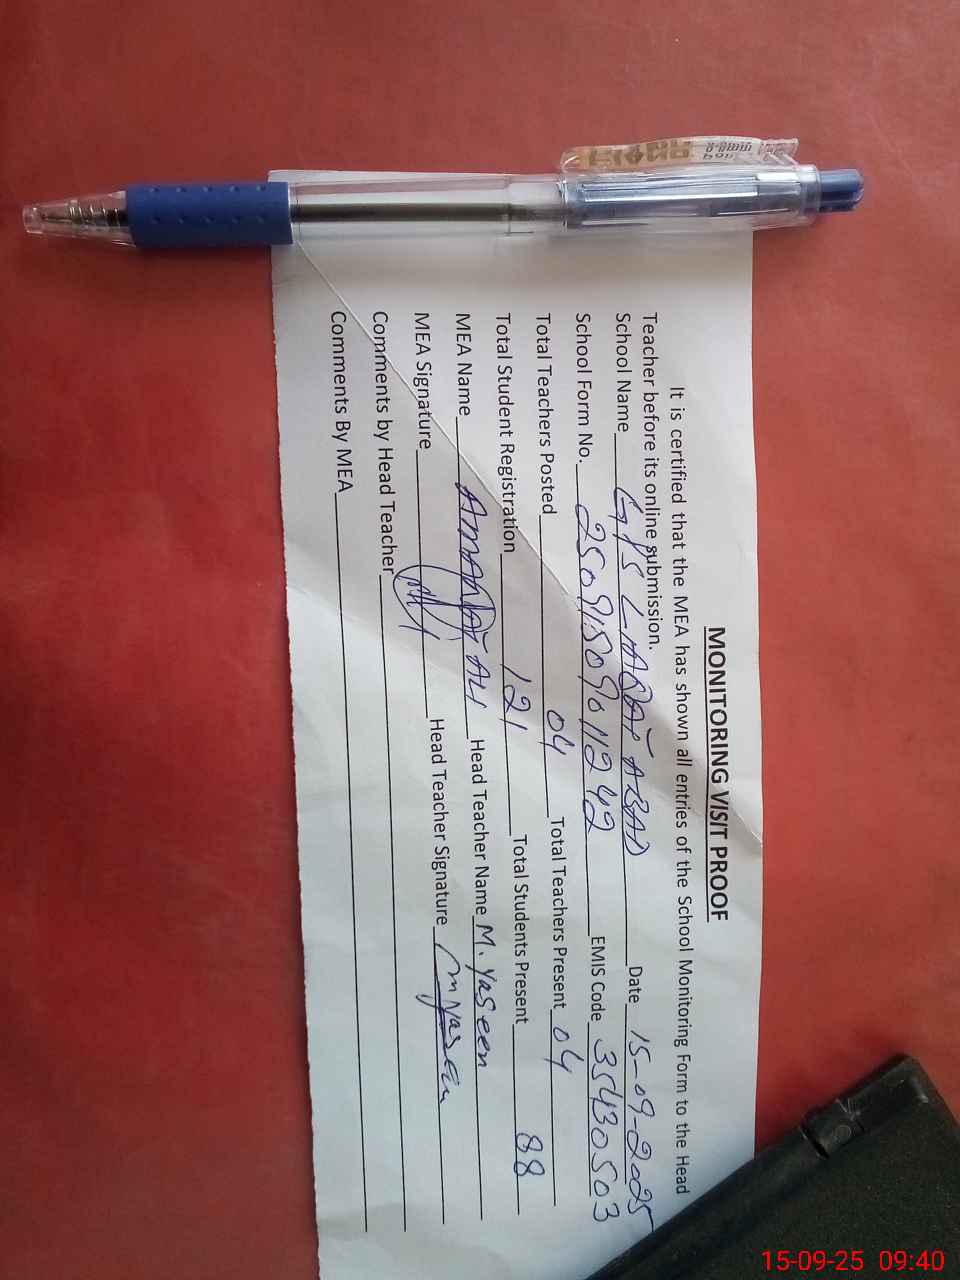 MONITORING VISIT PROOF
It is certified that the MEA has shown all entries of the School Monitoring Form to the Head
Teacher before its online submission.
School Name GPS LIAQAT ABAD Date 15-09-2025
School Form No. 25091509011242 EMIS Code 35430503
Total Teachers Posted 04 Total Teachers Present 04
Total Student Registration 121 Total Students Present 88
MEA Name ALI Head Teacher Name M. Yaseen
MEA Signature Head Teacher Signature M Yaseen
Comments by Head Teacher
Comments By MEA
15-09-25 09:40